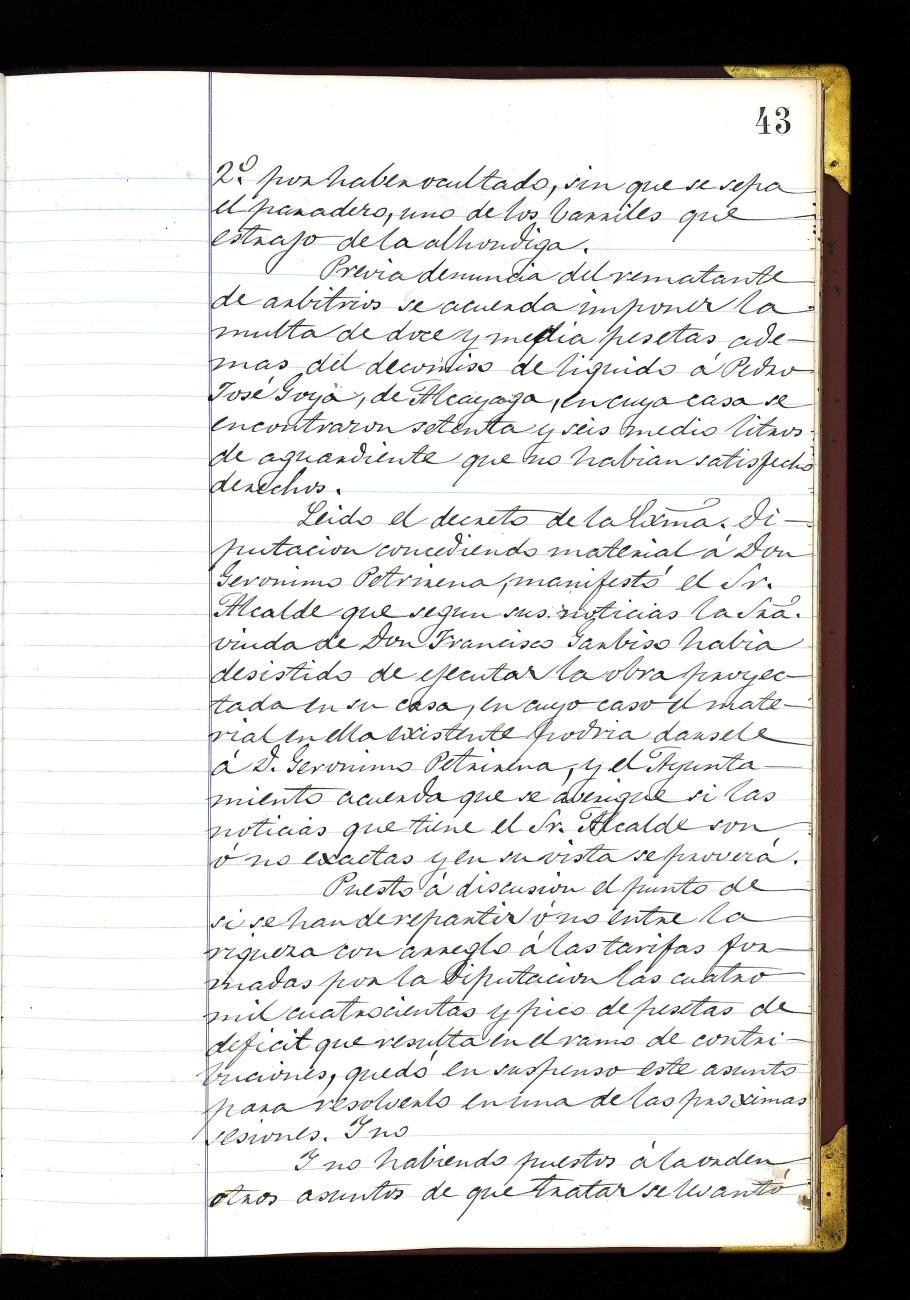 43
2º. por haber ocultado, sin que se sepa
el paradero, uno de los barriles que
estrajo de la alhondiga.
Previa denuncia del rematante
de arbitrios se acuerda imponer la
multa de doce y media pesetas ade-
mas del decomiso de liquido á Pedro
José Goya, de Alcayaga, en cuya casa se
encontraron setenta y seis medio litros
de aguardiente que no habian satisfecho
derechos.
Leido el decreto de la Exma. Di-
putacion concediendo material á Don
Geronimo Petrirena, manifestó el Sr.
Alcalde que segun sus noticias la Sra.
viuda de Don Francisco Garbiso habia
desistido de ejecutar la obra proyec-
tada en su casa, en cuyo caso el mate-
rial en ella existente podria darsele
á D. Geronimo Petrirena, y el Ayunta-
miento acuerda que se averigue si las
noticias que tiene el Sr. Alcalde son
ó no exactas y en su vista se proverá.
Puesto á discusion el punto de
si se han de repartir ó no entre la
riqueza con arreglo á las tarifas for-
madas por la Diputacion las cuatro
mil cuatrocientas y pico de pesetas de
deficit que resulta en el ramo de contri-
buciones, quedó en suspenso este asunto
para resolverlo en una de las proximas
sesiones. Y no
Y no habiendo puestos á la orden
otros asuntos de que tratar se levantó